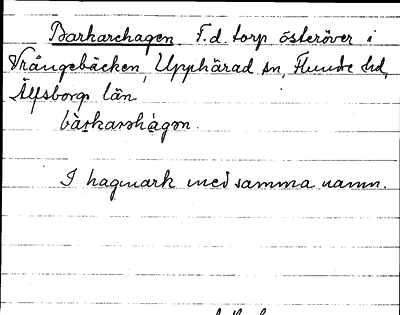 Barkarehagen F.d. torp österöver i
Vrångebäcken, Upphärad sn, Flundre hd,
Älfsborgs län
bàrkarəhàgən.
I hagmark med samma namn.